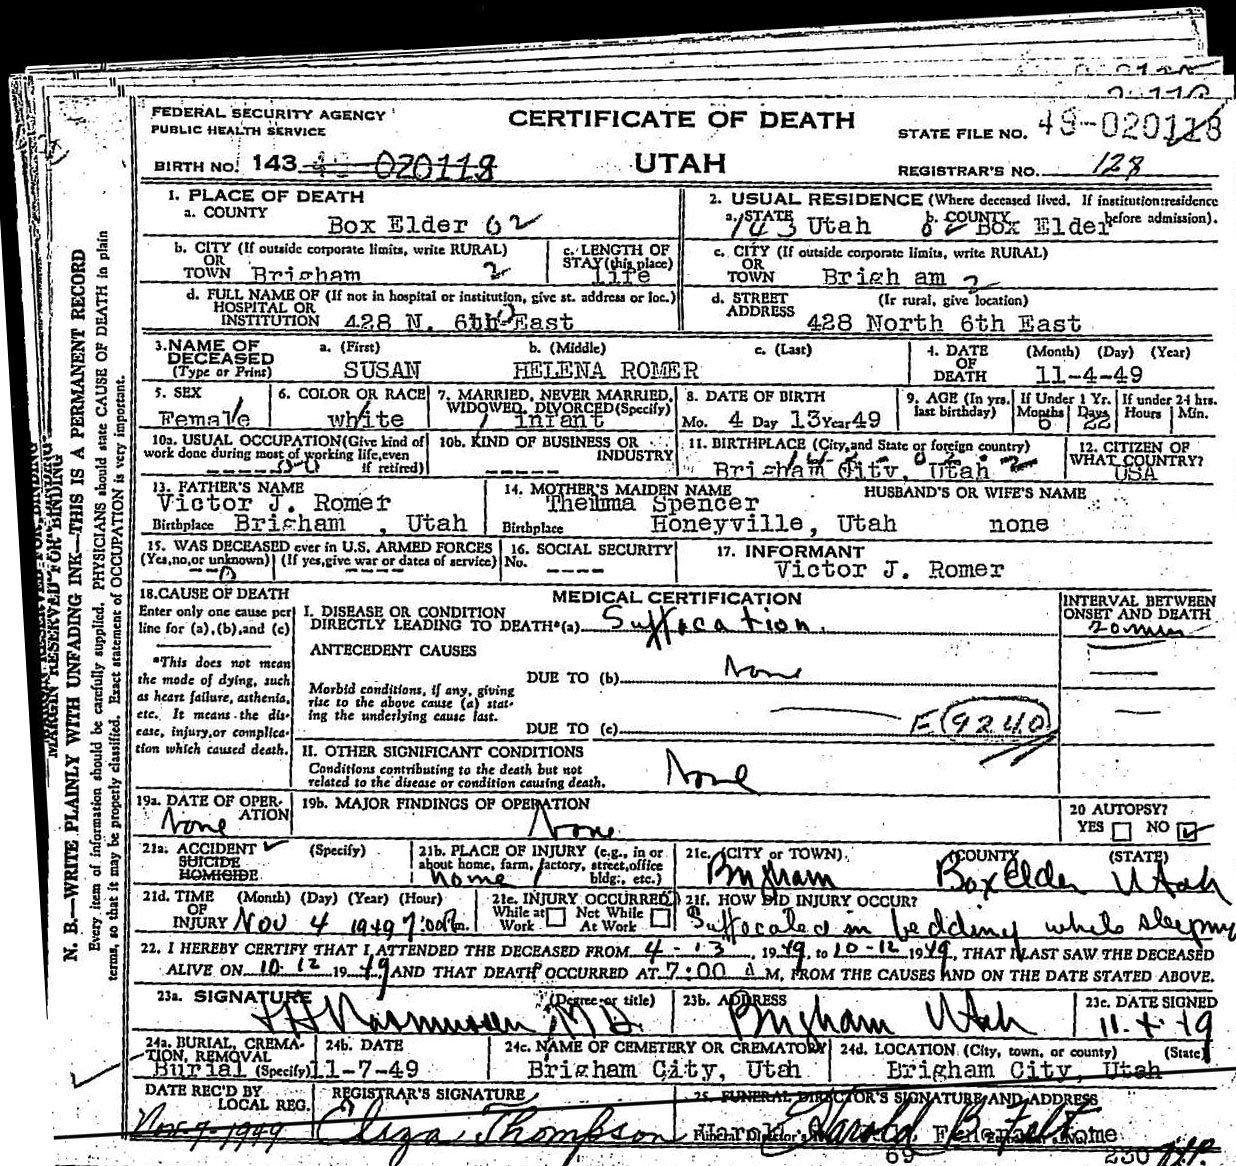 FEDERAL SECURITY AGENCY
PUBLIC HEALTH SERVICE
CERTIFICATE OF DEATH
STATE FILE NO. 49-020118
BIRTH NO. 143 020118
UTAH
REGISTRAR'S NO. 128
1. PLACE OF DEATH
a. COUNTY
Box Elder 02
2. USUAL RESIDENCE (Where deceased lived. If institution: residence before admission).
a. STATE Utah b. COUNTY Box Elder
143 02
b. CITY (If outside corporate limits, write RURAL)
OR
TOWN Brigham 2
c. LENGTH OF
STAY (this place)
life
c. CITY (If outside corporate limits, write RURAL)
OR
TOWN Brigh am 2
d. FULL NAME OF (If not in hospital or institution, give st. address or loc.)
HOSPITAL OR
INSTITUTION 428 N. 6th East
d. STREET (If rural, give location)
ADDRESS
428 North 6th East
3. NAME OF
DECEASED
(Type or Print)
a. (First) b. (Middle) c. (Last)
SUSAN HELENA ROMER
4. DATE (Month) (Day) (Year)
OF
DEATH 11-4-49
5. SEX
Female
6. COLOR OR RACE
white
7. MARRIED, NEVER MARRIED,
WIDOWED, DIVORCED (Specify)
infant
8. DATE OF BIRTH
Mo. 4 Day 13 Year 49
9. AGE (In yrs. last birthday)
If Under 1 Yr.
Months Days
6 22
If under 24 hrs.
Hours Min.
10a. USUAL OCCUPATION (Give kind of
work done during most of working life, even
if retired)
-----
10b. KIND OF BUSINESS OR
INDUSTRY
-----
11. BIRTHPLACE (City, and State or foreign country)
Brigham City, Utah
12. CITIZEN OF
WHAT COUNTRY?
USA
13. FATHER'S NAME
Victor J. Romer
Birthplace Brigham , Utah
14. MOTHER'S MAIDEN NAME
Thelma Spencer
Birthplace Honeyville, Utah
HUSBAND'S OR WIFE'S NAME
none
15. WAS DECEASED ever in U.S. ARMED FORCES
(Yes, no, or unknown) (If yes, give war or dates of service)
----
16. SOCIAL SECURITY
No. ----
17. INFORMANT
Victor J. Romer
18. CAUSE OF DEATH
Enter only one cause per
line for (a), (b), and (c)
*This does not mean
the mode of dying, such
as heart failure, asthenia,
etc. It means the dis-
ease, injury, or complica-
tion which caused death.
MEDICAL CERTIFICATION
I. DISEASE OR CONDITION
DIRECTLY LEADING TO DEATH*(a) Suffocation
INTERVAL BETWEEN
ONSET AND DEATH
20 min
ANTECEDENT CAUSES
DUE TO (b) None
Morbid conditions, if any, giving
rise to the above cause (a) stat-
ing the underlying cause last.
DUE TO (c) E 9240
II. OTHER SIGNIFICANT CONDITIONS
Conditions contributing to the death but not
related to the disease or condition causing death.
None
19a. DATE OF OPER-
ATION
None
19b. MAJOR FINDINGS OF OPERATION
None
20 AUTOPSY?
YES ☐ NO ☑
21a. ACCIDENT ✓ (Specify)
SUICIDE
HOMICIDE
21b. PLACE OF INJURY (e.g., in or
about home, farm, factory, street, office
bldg., etc.)
home
21c. (CITY or TOWN) (COUNTY) (STATE)
Brigham Box Elder Utah
21d. TIME (Month) (Day) (Year) (Hour)
OF
INJURY Nov 4 1949 7:00
21e. INJURY OCCURRED
While at Work ☐ Not While At Work ☐
21f. HOW DID INJURY OCCUR?
Suffocated in bedding while sleeping
22. I HEREBY CERTIFY THAT I ATTENDED THE DECEASED FROM 4-13, 1949, to 10-12 1949, THAT I LAST SAW THE DECEASED
ALIVE ON 10-12 1949 AND THAT DEATH OCCURRED AT 7:00 A M, FROM THE CAUSES AND ON THE DATE STATED ABOVE.
23a. SIGNATURE (Degree or title)
Rasmussen M.D.
23b. ADDRESS
Brigham Utah
23c. DATE SIGNED
11-4-49
24a. BURIAL, CREMA-
TION, REMOVAL
Burial (Specify)
24b. DATE
11-7-49
24c. NAME OF CEMETERY OR CREMATORY
Brigham City, Utah
24d. LOCATION (City, town, or county) (State)
Brigham City, Utah
DATE REC'D BY
LOCAL REG.
Nov-7-1949
REGISTRAR'S SIGNATURE
Eliza Thompson
25. FUNERAL DIRECTOR'S SIGNATURE AND ADDRESS
Harold B. Felt
69
N. B.—WRITE PLAINLY WITH UNFADING INK—THIS IS A PERMANENT RECORD
Every item of information should be carefully supplied. PHYSICIANS should state CAUSE OF DEATH in plain
terms, so that it may be properly classified. Exact statement of OCCUPATION is very important.
MARGIN RESERVED FOR BINDING